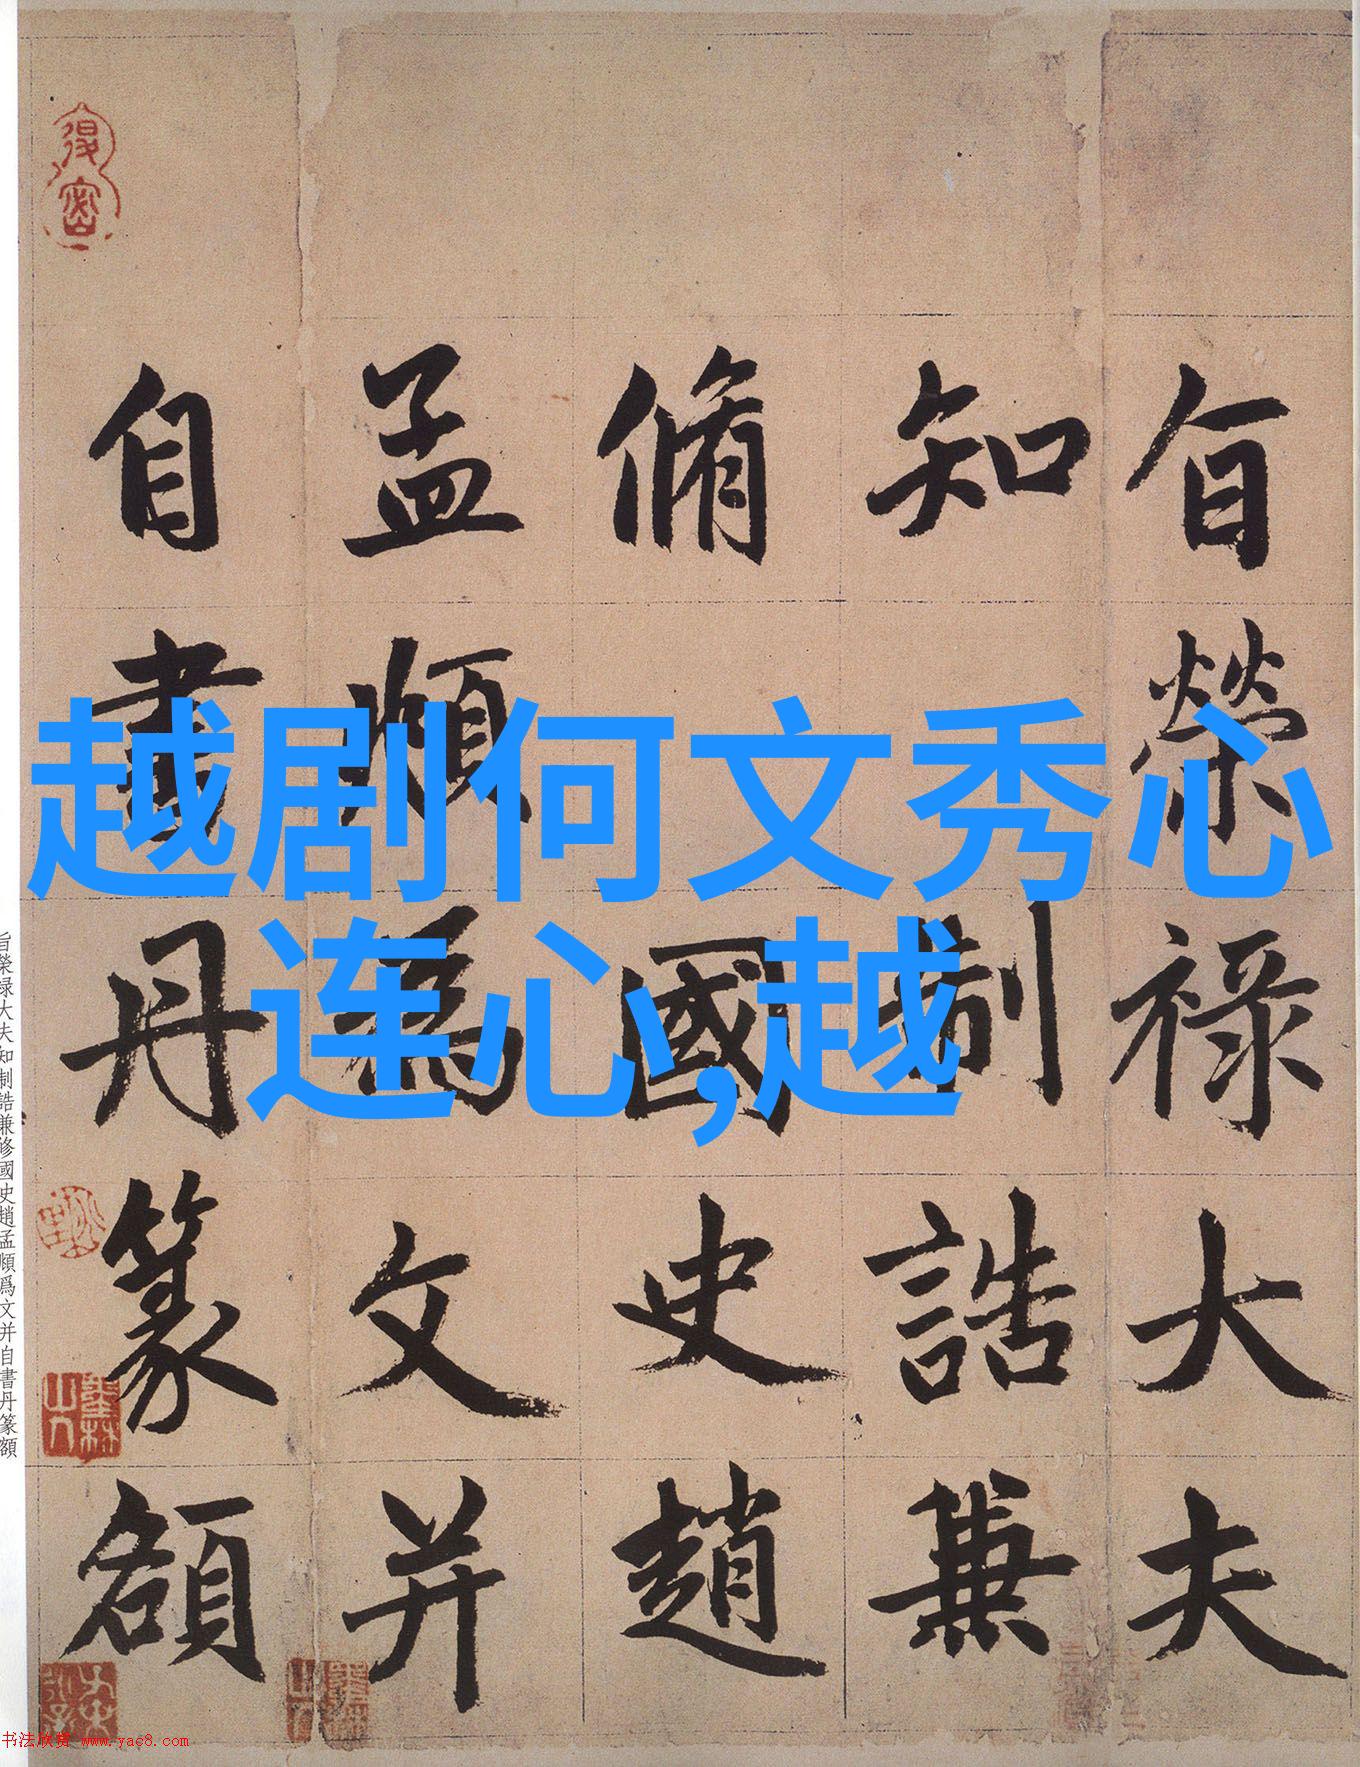 旨榮祿大夫
知制誥兼
脩國史趙
孟頫為文并
自書丹篆額
越剧何文秀心
连心,越
旨榮禄大夫知制誥兼修國史趙孟頫爲文并自書丹篆額
书法欣赏 www.yac8.com